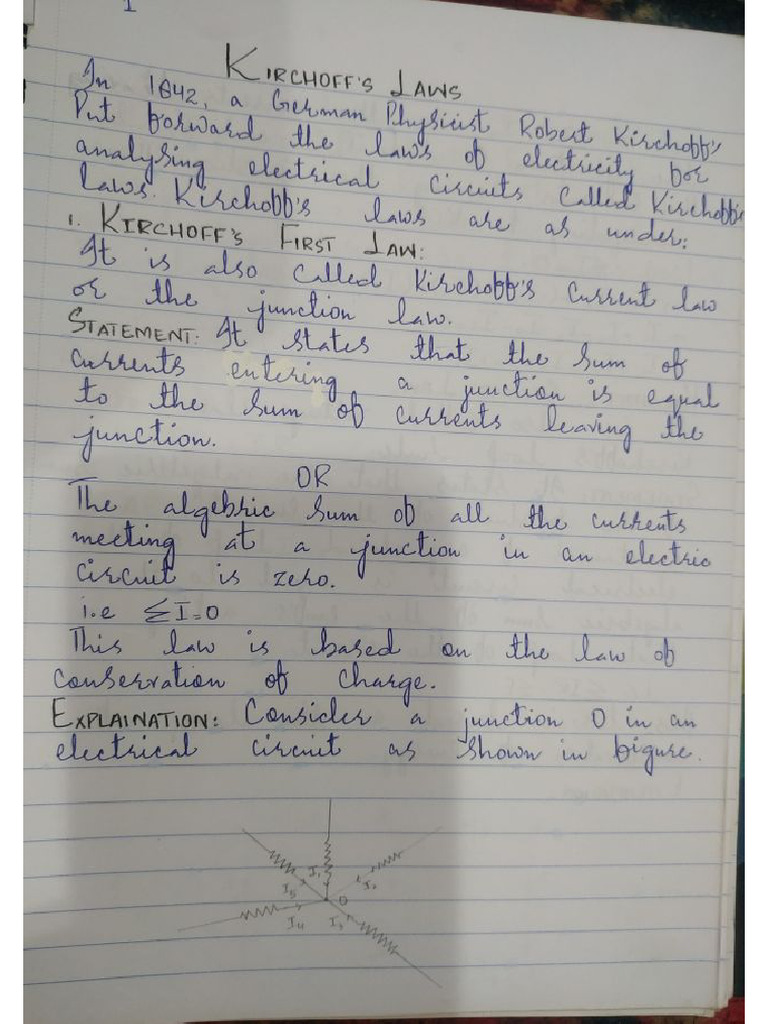 1
KIRCHOFF'S LAWS
In 1842, a German Physicist Robert Kirchoff's
Put forward the laws of electricity for
analysing electrical circuits called Kirchoff's
laws. Kirchoff's laws are as under:
1. KIRCHOFF'S FIRST LAW:
It is also called Kirchoff's current law
or the junction law.
STATEMENT: It states that the sum of
currents entering a junction is equal
to the sum of currents leaving the
junction.
OR
The algebric sum of all the currents
meeting at a junction in an electric
circuit is zero.
i.e ΣI=0
This law is based on the law of
conservation of charge.
EXPLAINATION: Consider a junction O in an
electrical circuit as shown in figure.
I1
I2
I5
O
I4
I3